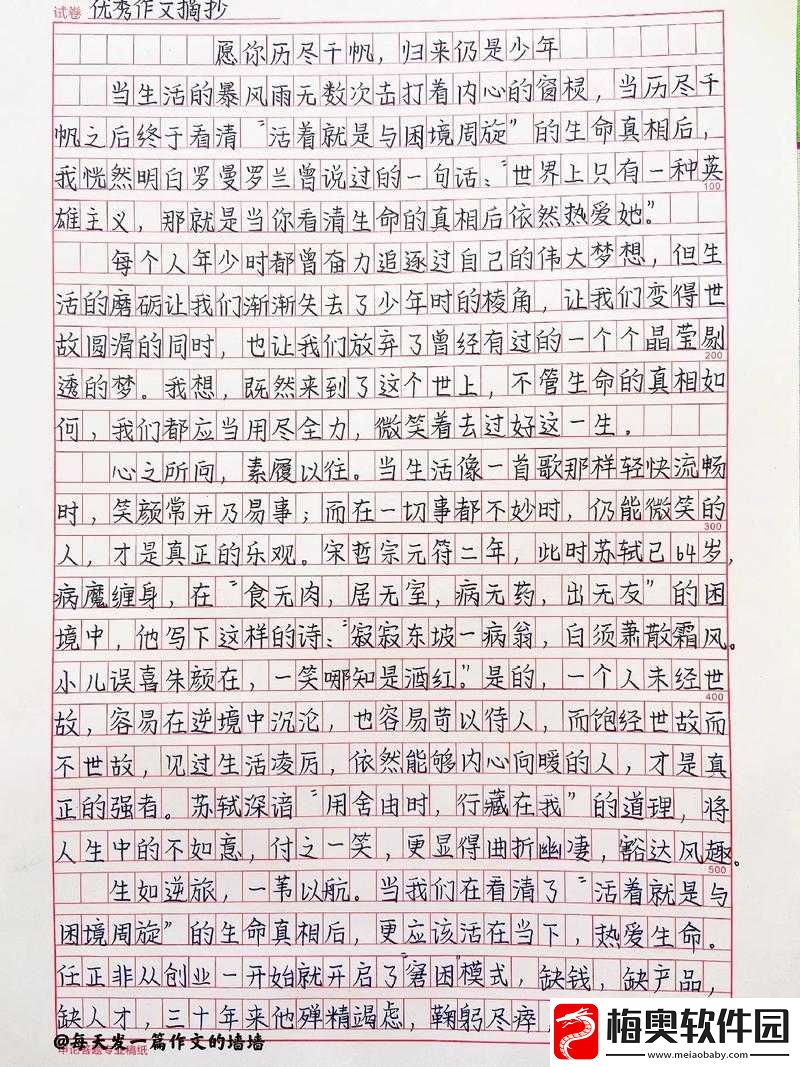 试卷 优秀作文摘抄
愿你历尽千帆，归来仍是少年
当生活的暴风雨无数次击打着内心的窗棂，当历尽千
帆之后终于看清“活着就是与困境周旋”的生命真相后，
我恍然明白罗曼罗兰曾说过的一句话：“世界上只有一种英
100
雄主义，那就是当你看清生命的真相后依然热爱她。”
每个人年少时都曾奋力追逐过自己的伟大梦想，但生
活的磨砺让我们渐渐失去了少年时的棱角，让我们变得世
故圆滑的同时，也让我们放弃了曾经有过的一个个晶莹剔
200
透的梦。我想，既然来到了这个世上，不管生命的真相如
何，我们都应当用尽全力，微笑着去过好这一生。
心之所向，素履以往。当生活像一首歌那样轻快流畅
时，笑颜常开乃易事；而在一切事都不妙时，仍能微笑的
300
人，才是真正的乐观。宋哲宗元符二年，此时苏轼已64岁，
病魔缠身，在“食无肉，居无室，病无药，出无友”的困
境中，他写下这样的诗：“寂寂东坡一病翁，白须萧散霜风。
小儿误喜朱颜在，一笑哪知是酒红。”是的，一个人未经世
400
故，容易在逆境中沉沦，也容易苛以待人，而饱经世故而
不世故，见过生活凌厉，依然能够内心向暖的人，才是真
正的强者。苏轼深谙“用舍由时，行藏在我”的道理，将
人生中的不如意，付之一笑，更显得曲折幽凄，豁达风趣。
500
生如逆旅，一苇以航。当我们在看清了“活着就是与
困境周旋”的生命真相后，更应该活在当下，热爱生命。
任正非从创业一开始就开启了“窘困”模式，缺钱，缺产品，
缺人才，三十年来他殚精竭虑，鞠躬尽瘁，
@每天发一篇作文的墙墙
申论答题专业稿纸
梅奥软件园
www.meiaobaby.com